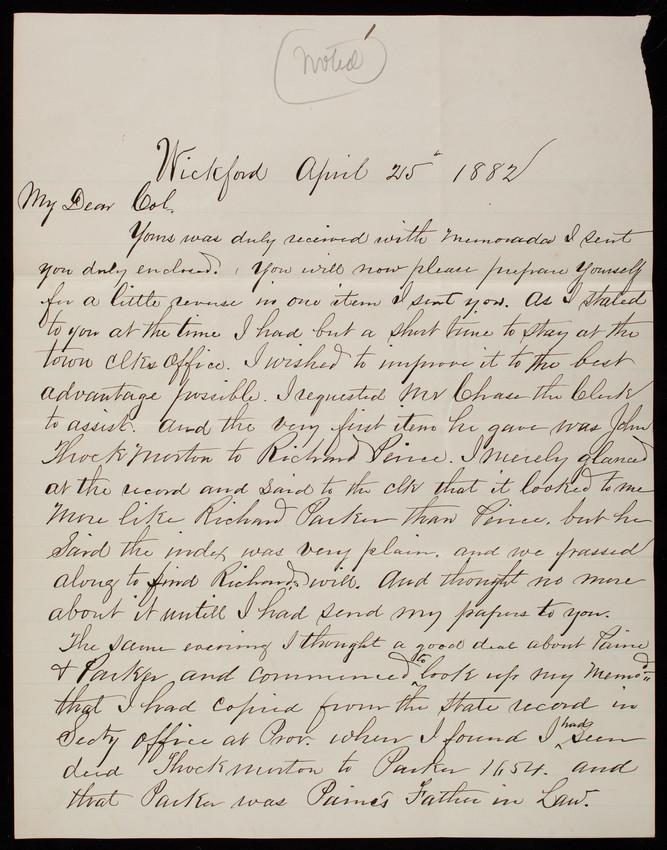 Noted
Wickford April 25" 1882
My Dear Col.
Yours was duly received with Memorada I sent
you duly enclosed. You will now please prepare yourself
for a little reverse in one item I sent you. As I stated
to you at the time I had but a short time to stay at the
town clks office. I wished to improve it to the best
advantage possible. I requested Mr Chase the Clerk
to assist. And the very first item he gave was John
Throckmorton to Richard Peirce. I merely glanced
at the record and said to the clk that it looked to me
more like Richard Parker than Peirce, but he
Said the index was very plain. and we passed
along to find Richards will. And thought no more
about it untill I had send my papers to you.
The same evening I thought a good deal about Paine
& Parker and commenced to look up my Memod"
that I had copied from the state record in
Secty office at Prov. when I found I had seen
deed Thockmorton to Parker 1654. and
that Parker was Paine's Father in Law.